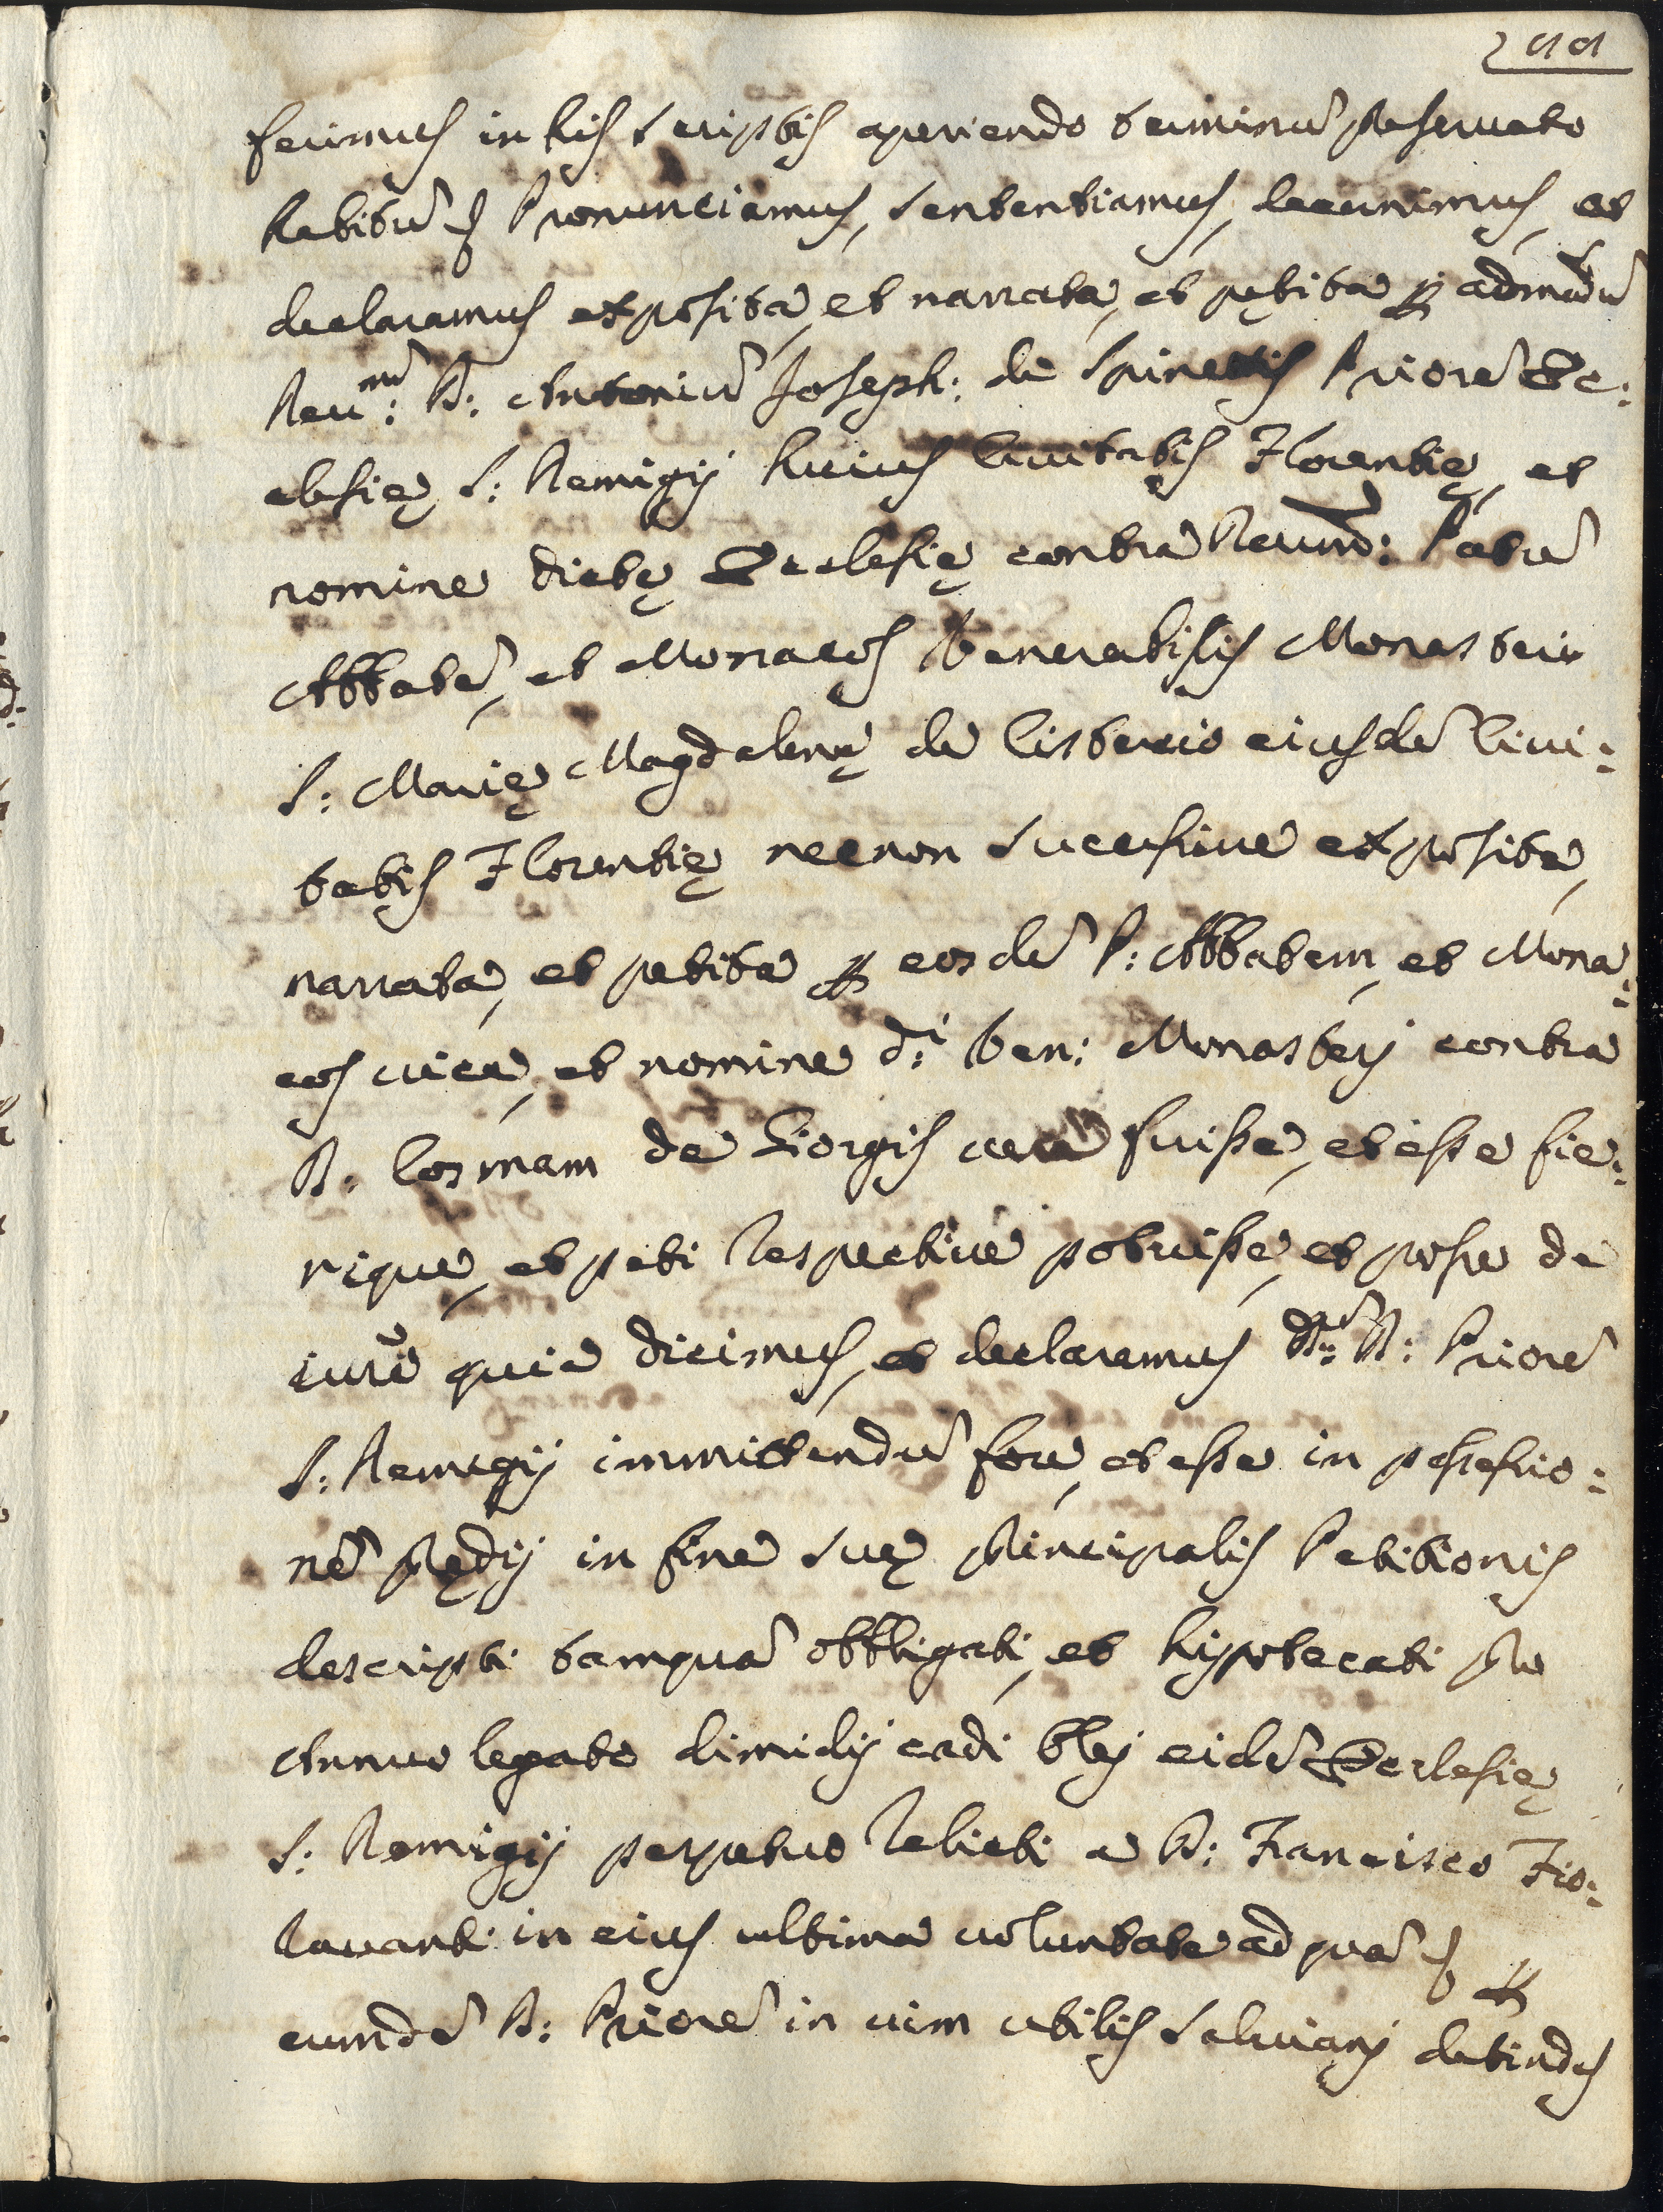 fecimus in his scriptis aperiendo terminũ preservato
habitũ &c. Pronunciamus, sententiamus, decernimus, et
declaramus exposita, et narrata, et petita per admodũ
Reu:^m D: Antoniũ Joseph: de Spinettis Priorẽ Ec:
clesię S: Remigij huius Civitatis Florentię, et
nomine dictę Ecclesię contra Revmd: Patrẽ
Abbatẽ, et Monacos Venerabilis Monasterii
S: Marię Magdalenę de Cistercio eiusdẽ Civi:
tatis Florentię necnon successive exposita,
narrata, et petita per eosdẽ P: Abbatem, et Mona:
cos vice, et nomine d:^i Ven: Monasterij contra
D: Cosmam de Giorgis vera fuisse, et esse fie:
rique, et peti respective potuisse, et posse de
iure quia dicimus, et declaramus D:^m D: Priorẽ
S: Remigij immittendũ fore, et esse in possessio:
nẽ prędij in fine suę principalis Petitionis
descripti tamquã obbligati, et hypotecati pro
Annuo legato dimidij cadi olei eidẽ Ecclesię
S: Remigij perpetuo relicti a D: Francisco Fio:
ravanti in eius ultima voluntate ad quã &c. per
eumdẽ D: Priorẽ in vim utilis Salviani detindus